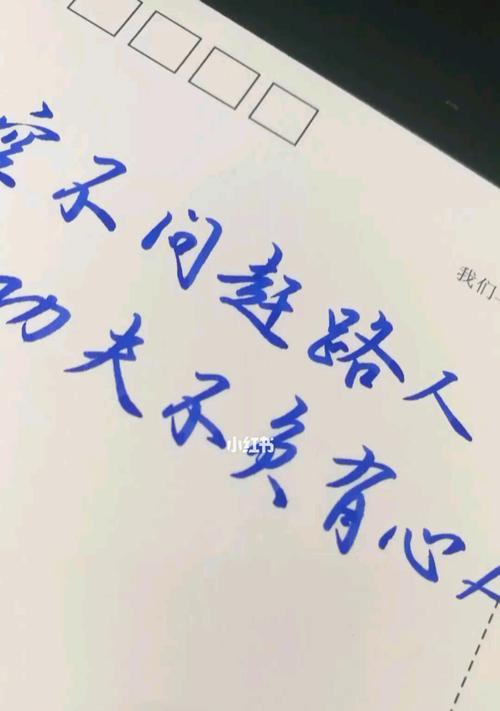 空不问赶路人
功夫不负有心人
我们
小红书